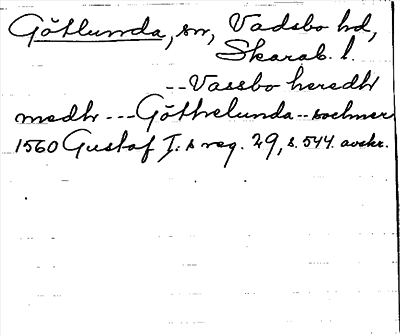 Götlunda, sn, Vadsbo hd,
Skarab. l.
-- Vassbo heredt
medh --- Göthelunda -- sochner
1560 Gustaf I:s reg. 29, s. 544. avskr.